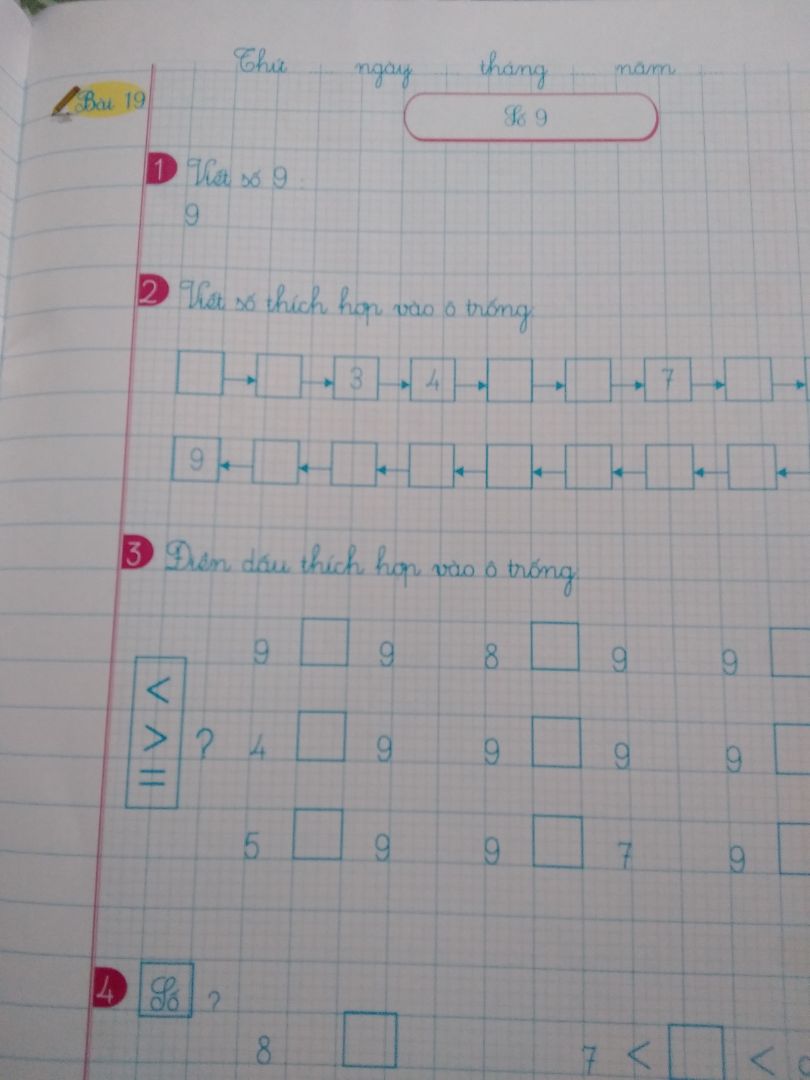 Thứ ..... ngày ..... tháng ..... năm .....
Bài 19
Số 9
1 Viết số 9.
9
2 Viết số thích hợp vào ô trống.
3 4 7
9
3 Điền dấu thích hợp vào ô trống.
9 9 8 9 9
< > = ? 4 9 9 9 9
5 9 9 7 9
4 Số ?
8 7 < <